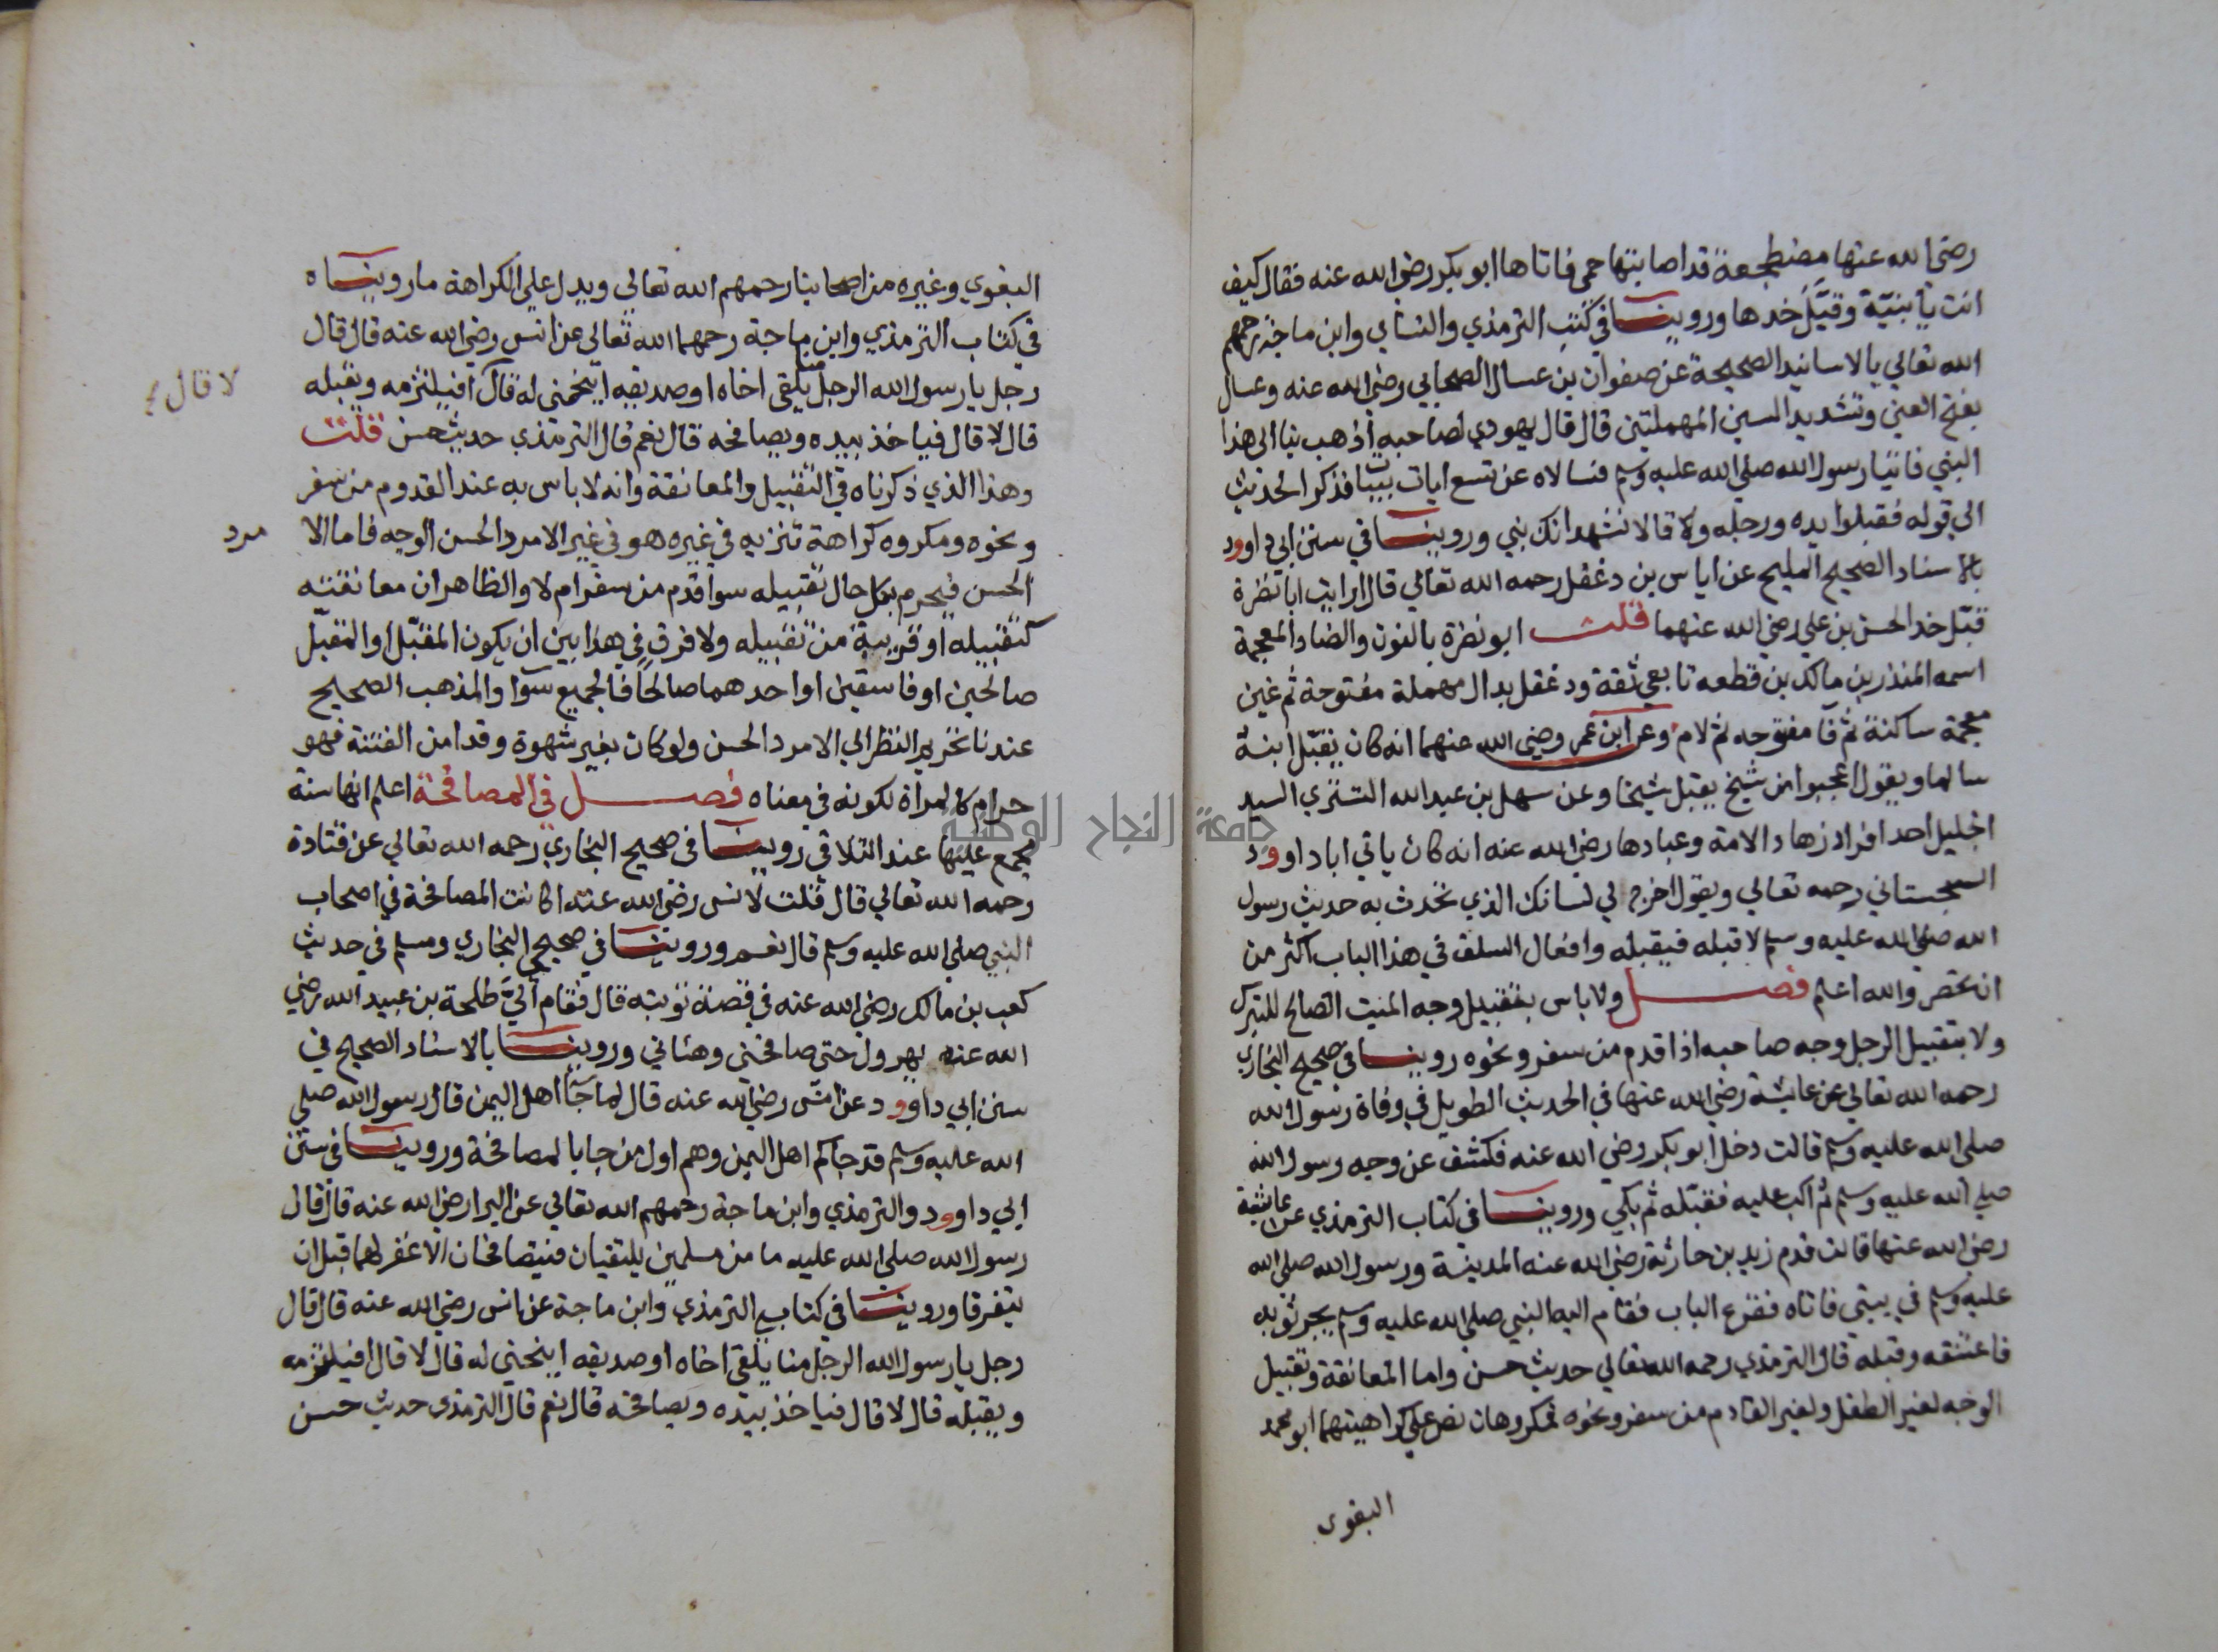 رضي الله عنها مضطجعة قد اصابتها حمى فاتاها ابو بكر رضي الله عنه فقال كيف
انت يا بنيّة وقبّل خدها وروينا في كتب الترمذي والنسائي وابن ماجة رحمهم
الله تعالي بالاسانيد الصحيحة عن صفوان بن عسال الصحابي رضي الله عنه وعسال
بفتح العين وتشديد السين المهملتين قال قال يهودي لصاحبه اذهب بنا الى هذا
النبي فاتيا رسول الله صلي الله عليه وسلم فسالاه عن تسع ايات بينات فذكر الحديث
الي قوله فقبلوا يده ورجله وقالا نشهد انك نبي وروينا في سنن ابي داوود
بالاسناد الصحيح المليح عن اياس بن دغفل رحمه الله تعالي قال رايت ابا نضرة
قبّل خد الحسن بن علي رضي الله عنهما قلت ابو نضرة بالنون والضاد المعجمة
اسمه المنذر بن مالك بن قطعه تابعي ثقة ودغفل بدال مهملة مفتوحة ثم غين
معجمة ساكنة ثم فا مفتوحه ثم لام وعن ابن عمر رضي الله عنهما انه كان يقبّل ابنه
سالما ويقول اعجبوا من شيخ يقبل شيخا وعن سهل بن عبد الله التستري السيد
الجليل احد افراد زهاد الامة وعبادها رضي الله عنه انه كان ياتي ابا داوود
السجستاني رحمه تعالي ويقول اخرج لي لسانك الذي تحدث به حديث رسول
الله صلي الله عليه وسلم لاقبله فيقبله وافعال السلف في هذا الباب اكثر من
ان تحصر والله اعلم فصل ولا باس بتقبيل وجه الميت الصالح للتبرك
ولا بتقبيل الرجل وجه صاحبه اذا قدم من سفر ونحوه روينا في صحيح البخاري
رحمه الله تعالي عن عايشة رضي الله عنها في الحديث الطويل في وفاة رسول الله
صلي الله عليه وسلم قالت دخل ابو بكر رضي الله عنه فكشف عن وجه رسول الله
صلي الله عليه وسلم ثم اكب عليه فقبّله ثم بكي وروينا في كتاب الترمذي عن عايشة
رضي الله عنها قالت قدم زيد بن حارثة رضي الله عنه المدينة ورسول الله صلي الله
عليه وسلم في بيتي فاتاه فقرع الباب فقام اليه النبي صلي الله عليه وسلم يجر ثوبه
فاعتنقه وقبله قال الترمذي رحمه الله تعالي حديث حسن واما المعانقة وتقبيل
الوجه لغير الطفل ولغير القادم من سفر ونحوه فمكروهان نص علي كراهيتهما ابو محمد
البغوي
البغوي وغيره من اصحابنا رحمهم الله تعالي ويدل علي الكراهة ما رويناه
في كتاب الترمذي وابن ماجة رحمهما الله تعالي عن انس رضي الله عنه قال قال
رجل يا رسول الله الرجل منا يلقى اخاه او صديقه اينحني له قال افيلتزمه ويقبله
لا قال
قال لا قال فياخذ بيده ويصافحه قال نعم قال الترمذي حديث حسن قلت
وهذا الذي ذكرناه في التقبيل والمعانقة وانه لا باس به عند القدوم من سفر
ونحوه ومكروه كراهة تنزيه في غيره هو في غير الامرد الحسن الوجه فاما الا
مرد
الحسن فيحرم بكل حال تقبيله سوا قدم من سفر ام لا والظاهر ان معانقته
كتقبيله او قريبة من تقبيله ولا فرق في هذا بين ان يكون المقبّل او المقبّل
صالحين او فاسقين او احدهما صالحا فالجميع سوا والمذهب الصحيح
عندنا تحريم النظر الي الامرد الحسن ولو كان بغير شهوة وقد امن الفتنة فهو
حرام كالمراة لكونه في معناه فصل في المصافحة اعلم انها سنة
مجمع عليها عند التلاقي روينا في صحيح البخاري رحمه الله تعالي عن قتادة
جامعة النجاح الوطنية
رحمه الله تعالي قال قلت لانس رضي الله عنه اكانت المصافحة في اصحاب
النبي صلي الله عليه وسلم قال نعم وروينا في صحيحي البخاري ومسلم في حديث
كعب بن مالك رضي الله عنه في قصة توبته قال فقام اليّ طلحة بن عبيد الله رضي
الله عنه يهرول حتى صافحني وهناني وروينا بالاسناد الصحيح في
سنن ابي داوود عن انس رضي الله عنه قال لما جاء اهل اليمن قال رسول الله صلي
الله عليه وسلم قد جاكم اهل اليمن وهم اول من جا بالمصافحة وروينا في سنن
ابي داوود والترمذي وابن ماجة رحمهم الله تعالي عن البرا رضي الله عنه قال قال
رسول الله صلي الله عليه ما من مسلمين يلتقيان فيتصافحان الا غفر لهما قبل ان
يتفرقا وروينا في كتابي الترمذي وابن ماجة عن انس رضي الله عنه قال قال
رجل يا رسول الله الرجل منا يلقى اخاه او صديقه اينحني له قال لا قال افيلتزمه
ويقبله قال لا قال فياخذ بيده ويصافحه قال نعم قال الترمذي حديث حسن